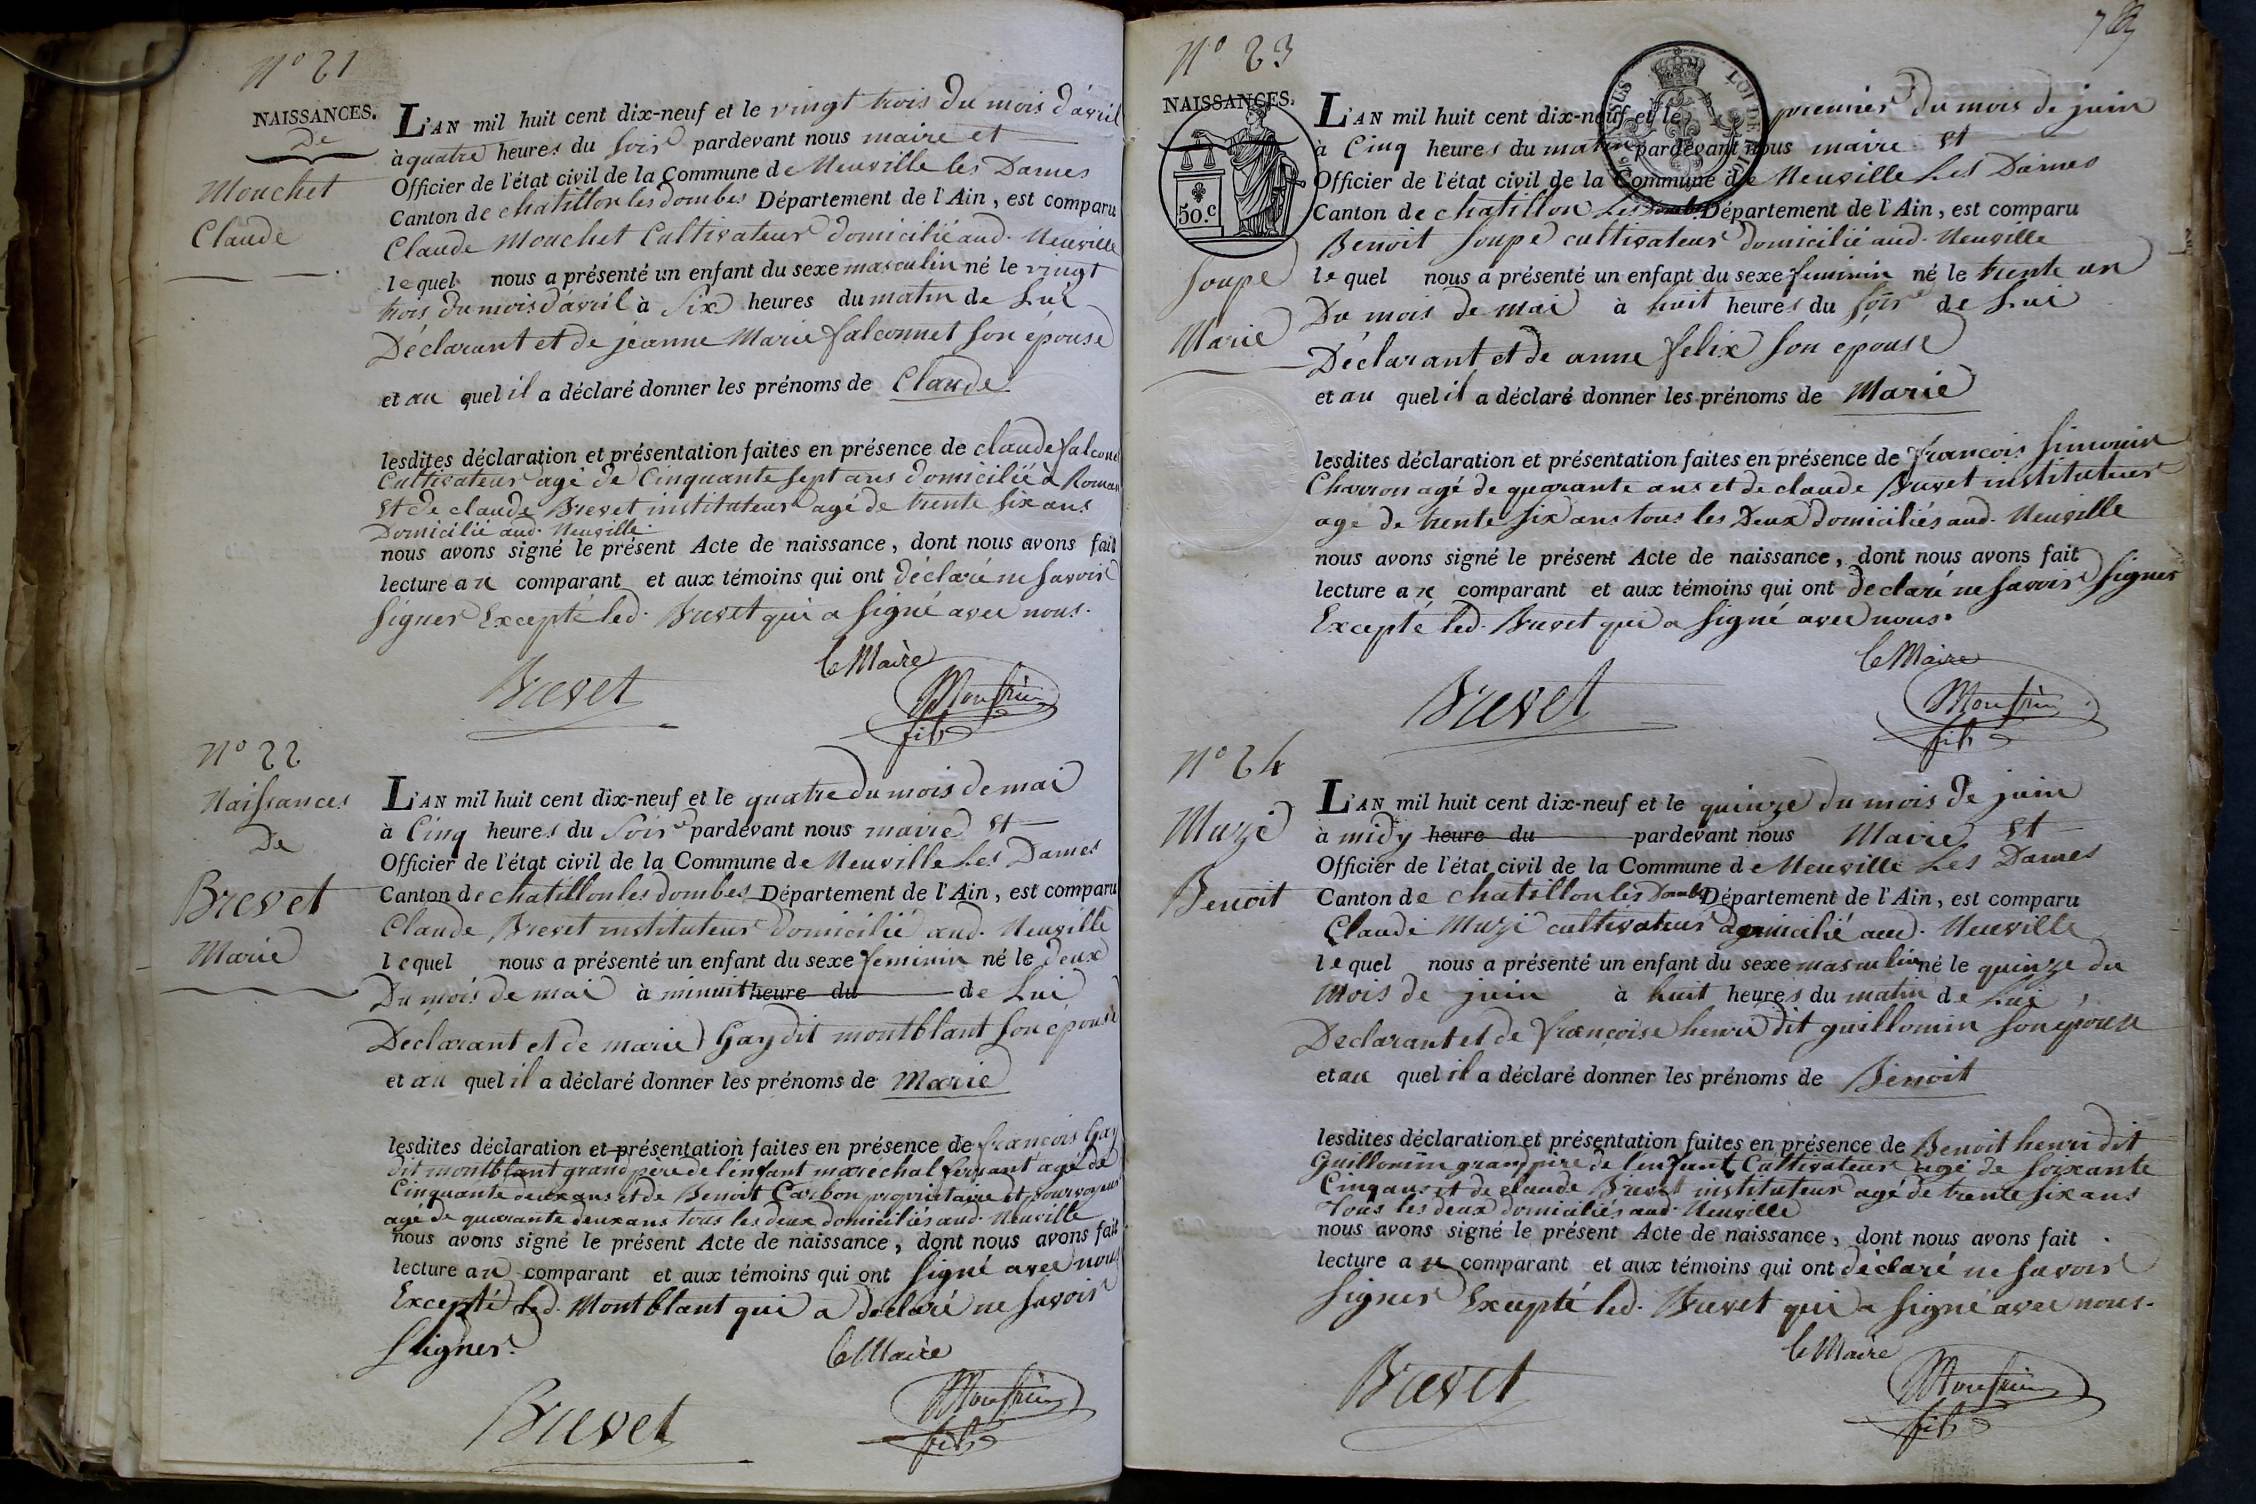 N° 21
NAISSANCES.
De
Mouchet
Claude
L'AN mil huit cent dix-neuf et le vingt trois du mois d'avril
à quatre heures du soir pardevant nous maire et
Officier de l'état civil de la Commune de Neuville les Dames
Canton de chatillon les dombes Département de l'Ain, est comparu
Claude Mouchet Cultivateur domicilié aud. Neuville
lequel nous a présenté un enfant du sexe masculin né le vingt
trois du mois d'avril à six heures du matin de Lui
Déclarant et de jeanne Marie falconnet son épouse
et au quel il a déclaré donner les prénoms de Claude
lesdites déclaration et présentation faites en présence de claude falconet
Cultivateur agé de Cinquante sept ans domicilié à Roman
Et de claude Brevet instituteur agé de trente six ans
Domicilié aud. Neuville.
nous avons signé le présent Acte de naissance, dont nous avons fait
lecture au comparant et aux témoins qui ont déclaré ne savoir
signer Excepté led. Brevet qui a signé avec nous.
le Maire
Brevet
Monfrin
fils
N° 22
Naissances
De
Brevet
Marie
L'AN mil huit cent dix-neuf et le quatre du mois de mai
à Cinq heures du soir pardevant nous maire Et
Officier de l'état civil de la Commune de Neuville Les Dames
Canton de chatillon les dombes Département de l'Ain, est comparu
Claude Brevet instituteur domicilié aud. Neuville
lequel nous a présenté un enfant du sexe feminin né le deux
Du mois de mai à minuit heure du de Lui
Déclarant et de marie Gay dit montblant son épouse
et au quel il a déclaré donner les prénoms de Marie
lesdites déclaration et présentation faites en présence de françois Gay
dit montblant grand pere de l'enfant maréchal ferrant agé de
Cinquante deux ans et de Benoit Carbon propriétaire et pourvoyeur
agé de quarante deux ans tous les deux domiciliés aud. Neuville
nous avons signé le présent Acte de naissance, dont nous avons fait
lecture au comparant et aux témoins qui ont signé avec nous
Excepté led. Montblant qui a declaré ne savoir
signer.
le Maire
Brevet
Monfrin
fils
N° 23
NAISSANCES.
50.c
LOI DE
Soupe
Marie
L'AN mil huit cent dix-neuf et le premier du mois de juin
à Cinq heures du matin pardevant nous maire et
Officier de l'état civil de la Commune de Neuville Les Dames
Canton de chatillon Les Dombes Département de l'Ain, est comparu
Benoit Soupe cultivateur domicilié aud. Neuville
lequel nous a présenté un enfant du sexe feminin né le trente un
Du mois de mai à huit heures du soir de Lui
Déclarant et de anne felix son épouse
et au quel il a déclaré donner les prénoms de Marie
lesdites déclaration et présentation faites en présence de françois Simonin
Charron agé de quarante ans et de claude Brevet instituteur
agé de trente six ans tous les Deux domiciliés aud. Neuville
nous avons signé le présent Acte de naissance, dont nous avons fait
lecture au comparant et aux témoins qui ont declaré ne savoir signer
Excepté led. Brevet qui a signé avec nous.
le Maire
Brevet
Monfrin
fils
N° 24
Muzi
Benoit
L'AN mil huit cent dix-neuf et le quinze du mois de juin
à midy heure du pardevant nous Maire Et
Officier de l'état civil de la Commune de Neuville Les Dames
Canton de chatillon les Dombes Département de l'Ain, est comparu
Claude Muzi cultivateur domicilié aud. Neuville
lequel nous a présenté un enfant du sexe masculin né le quinze du
Mois de juin à huit heures du matin de Lui
Declarant et de françoise henri dit guillomin son epouse
et au quel il a déclaré donner les prénoms de Benoit
lesdites déclaration et présentation faites en présence de Benoit henri dit
Guillomin grand pire de l'enfant Cultivateur agé de soixante
Cinq ans et de claude Brevet instituteur agé de trente six ans
Tous les deux domiciliés aud. Neuville
nous avons signé le présent Acte de naissance, dont nous avons fait
lecture au comparant et aux témoins qui ont déclaré ne savoir
signer Excepté led. Brevet qui a signé avec nous.
le Maire
Brevet
Monfrin
fils